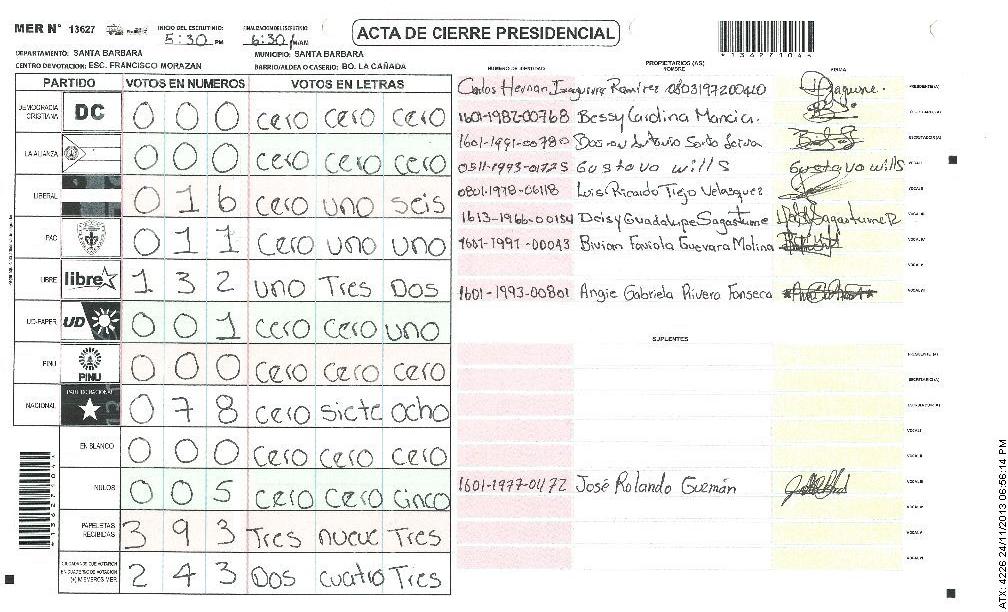 MER N° 13627
INICIO DEL ESCRUTINIO: 5:30 PM
FINALIZACION DEL ESCRUTINIO: 6:30 PM/AM
ACTA DE CIERRE PRESIDENCIAL
*13627104*
DEPARTAMENTO: SANTA BARBARA
MUNICIPIO: SANTA BARBARA
CENTRO DE VOTACION: ESC. FRANCISCO MORAZAN
BARRIO/ALDEA O CASERIO: BO. LA CAÑADA
PARTIDO VOTOS EN NUMEROS VOTOS EN LETRAS
DEMOCRACIA CRISTIANA DC 0 0 0 cero cero cero
LA ALIANZA 0 0 0 cero cero cero
LIBERAL 0 1 6 cero uno seis
PAC 0 1 1 cero uno uno
LIBRE libre 1 3 2 uno Tres Dos
UD-FAPER UD 0 0 1 cero cero uno
PINU PINU 0 0 0 cero cero cero
NACIONAL PARTIDO NACIONAL 0 7 8 cero siete ocho
EN BLANCO 0 0 0 cero cero cero
NULOS 0 0 5 cero cero cinco
PAPELETAS RECIBIDAS 3 9 3 Tres nueve Tres
CIUDADANOS QUE VOTARON EN CUADERNO DE VOTACION (+) MIEMBROS MER 2 4 3 Dos cuatro Tres
NUMERO DE IDENTIDAD PROPIETARIOS (AS) NOMBRE FIRMA
Carlos Hernan Izaguirre Ramirez 0803197200410 PRESIDENTE (A)
1601-1982-00768 Bessy Carolina Mancia.
1601-1991-00780 SECRETARIO (A)
0511-1993-01725 Gustavo Wills Gustavo Wills VOCAL I
0801-1978-06118 Luis Ricardo Trejo Velasquez VOCAL II
1613-1966-00154 Deisy Guadalupe Sagastume VOCAL III
1601-1991-00043 Bivian Fabiola Guevara Molina VOCAL IV
VOCAL V
1601-1993-00801 Angie Gabriela Rivera Fonseca VOCAL VI
SUPLENTES
PRESIDENTE (A)
SECRETARIO (A)
ESCRUTADOR (A)
VOCAL I
VOCAL II
1601-1977-0172 José Rolando Guzmán VOCAL III
VOCAL IV
VOCAL V
VOCAL VI
*13627104*
ATX: 4226 24/11/2013 06:56:14 PM